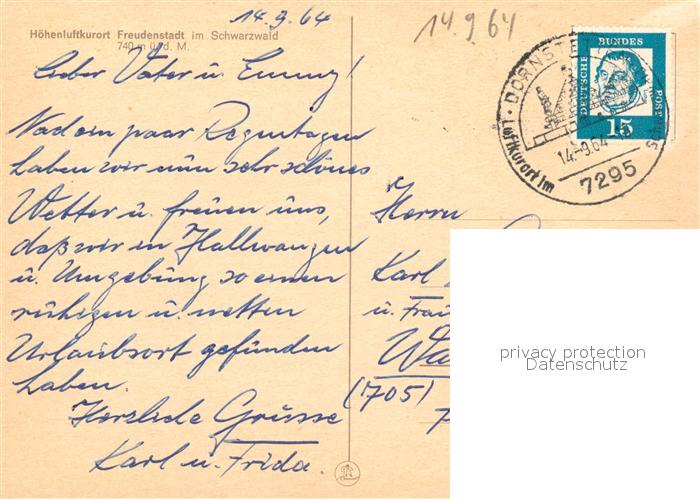 14.9.64
14.9.64
Höhenluftkurort Freudenstadt im Schwarzwald
740 m ü. d. M.
Lieber Vater u. Emmy!
Nach ein paar Regentagen
haben wir nun sehr schönes
Wetter u. freuen uns,
daß wir in Hallwangen
u. Umgebung so einen
ruhigen u. netten
Urlaubsort gefunden
haben.
Herzliche Grüsse
Karl u. Frida.
DEUTSCHE BUNDES POST
15
Luftkurort im
14.-9.64
7295
Herrn
Karl
u. Frau
Wa
(705)
privacy protection
Datenschutz